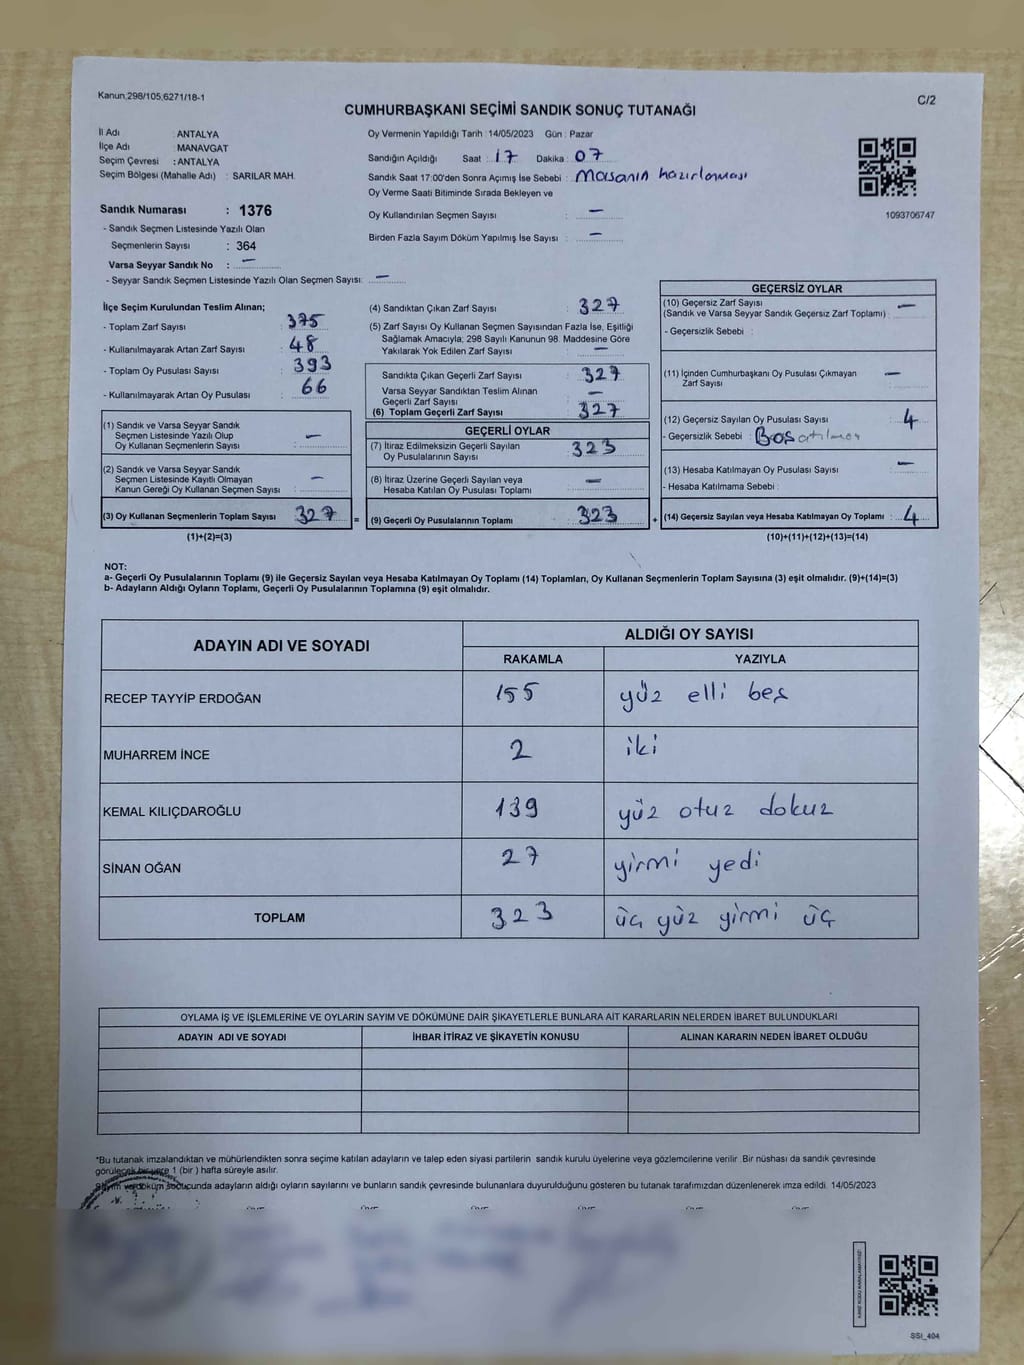 Kanun,298/105,6271/18-1
C/2
CUMHURBAŞKANI SEÇİMİ SANDIK SONUÇ TUTANAĞI
İl Adı : ANTALYA
İlçe Adı : MANAVGAT
Seçim Çevresi : ANTALYA
Seçim Bölgesi (Mahalle Adı) : SARILAR MAH.
Sandık Numarası : 1376
- Sandık Seçmen Listesinde Yazılı Olan
Seçmenlerin Sayısı : 364
Varsa Seyyar Sandık No : —
- Seyyar Sandık Seçmen Listesinde Yazılı Olan Seçmen Sayısı: —
Oy Vermenin Yapıldığı Tarih : 14/05/2023 Gün : Pazar
Sandığın Açıldığı Saat : 17 Dakika : 07
Sandık Saat 17:00'den Sonra Açımış İse Sebebi : Masanın hazırlaması
Oy Verme Saati Bitiminde Sırada Bekleyen ve
Oy Kullandırılan Seçmen Sayısı : —
Birden Fazla Sayım Döküm Yapılmış İse Sayısı : —
1093706747
İlçe Seçim Kurulundan Teslim Alınan;
- Toplam Zarf Sayısı : 375
- Kullanılmayarak Artan Zarf Sayısı : 48
- Toplam Oy Pusulası Sayısı : 393
- Kullanılmayarak Artan Oy Pusulası : 66
(1) Sandık ve Varsa Seyyar Sandık
Seçmen Listesinde Yazılı Olup
Oy Kullanan Seçmenlerin Sayısı : —
(2) Sandık ve Varsa Seyyar Sandık
Seçmen Listesinde Kayıtlı Olmayan
Kanun Gereği Oy Kullanan Seçmen Sayısı : —
(3) Oy Kullanan Seçmenlerin Toplam Sayısı : 327
(1)+(2)=(3)
=
(4) Sandıktan Çıkan Zarf Sayısı : 327
(5) Zarf Sayısı Oy Kullanan Seçmen Sayısından Fazla İse, Eşitliği
Sağlamak Amacıyla; 298 Sayılı Kanunun 98. Maddesine Göre
Yakılarak Yok Edilen Zarf Sayısı : —
Sandıkta Çıkan Geçerli Zarf Sayısı : 327
Varsa Seyyar Sandıktan Teslim Alınan
Geçerli Zarf Sayısı : —
(6) Toplam Geçerli Zarf Sayısı : 327
GEÇERLİ OYLAR
(7) İtiraz Edilmeksizin Geçerli Sayılan
Oy Pusulalarının Sayısı : 323
(8) İtiraz Üzerine Geçerli Sayılan veya
Hesaba Katılan Oy Pusulası Toplamı : —
(9) Geçerli Oy Pusulalarının Toplamı : 323
+
GEÇERSİZ OYLAR
(10) Geçersiz Zarf Sayısı
(Sandık ve Varsa Seyyar Sandık Geçersiz Zarf Toplamı) : —
- Geçersizlik Sebebi :
(11) İçinden Cumhurbaşkanı Oy Pusulası Çıkmayan
Zarf Sayısı : —
(12) Geçersiz Sayılan Oy Pusulası Sayısı : 4
- Geçersizlik Sebebi :
(13) Hesaba Katılmayan Oy Pusulası Sayısı : —
- Hesaba Katılmama Sebebi :
(14) Geçersiz Sayılan veya Hesaba Katılmayan Oy Toplamı : 4
(10)+(11)+(12)+(13)=(14)
NOT:
a- Geçerli Oy Pusulalarının Toplamı (9) ile Geçersiz Sayılan veya Hesaba Katılmayan Oy Toplamı (14) Toplamları, Oy Kullanan Seçmenlerin Toplam Sayısına (3) eşit olmalıdır. (9)+(14)=(3)
b- Adayların Aldığı Oyların Toplamı, Geçerli Oy Pusulalarının Toplamına (9) eşit olmalıdır.
ADAYIN ADI VE SOYADI
ALDIĞI OY SAYISI
RAKAMLA YAZIYLA
RECEP TAYYİP ERDOĞAN 155 yüz elli beş
MUHARREM İNCE 2 iki
KEMAL KILIÇDAROĞLU 139 yüz otuz dokuz
SİNAN OĞAN 27 yirmi yedi
TOPLAM 323 üç yüz yirmi üç
OYLAMA İŞ VE İŞLEMLERİNE VE OYLARIN SAYIM VE DÖKÜMÜNE DAİR ŞİKAYETLERLE BUNLARA AİT KARARLARIN NELERDEN İBARET BULUNDUKLARI
ADAYIN ADI VE SOYADI İHBAR İTİRAZ VE ŞİKAYETİN KONUSU ALINAN KARARIN NEDEN İBARET OLDUĞU
*Bu tutanak imzalandıktan ve mühürlendikten sonra seçime katılan adayların ve talep eden siyasi partilerin sandık kurulu üyelerine veya gözlemcilerine verilir. Bir nüshası da sandık çevresinde
görülecek bir yere 1 (bir ) hafta süreyle asılır.
Sayım ve döküm sonucunda adayların aldığı oyların sayılarını ve bunların sandık çevresinde bulunanlara duyurulduğunu gösteren bu tutanak tarafımızdan düzenlenerek imza edildi. 14/05/2023
SSI_404